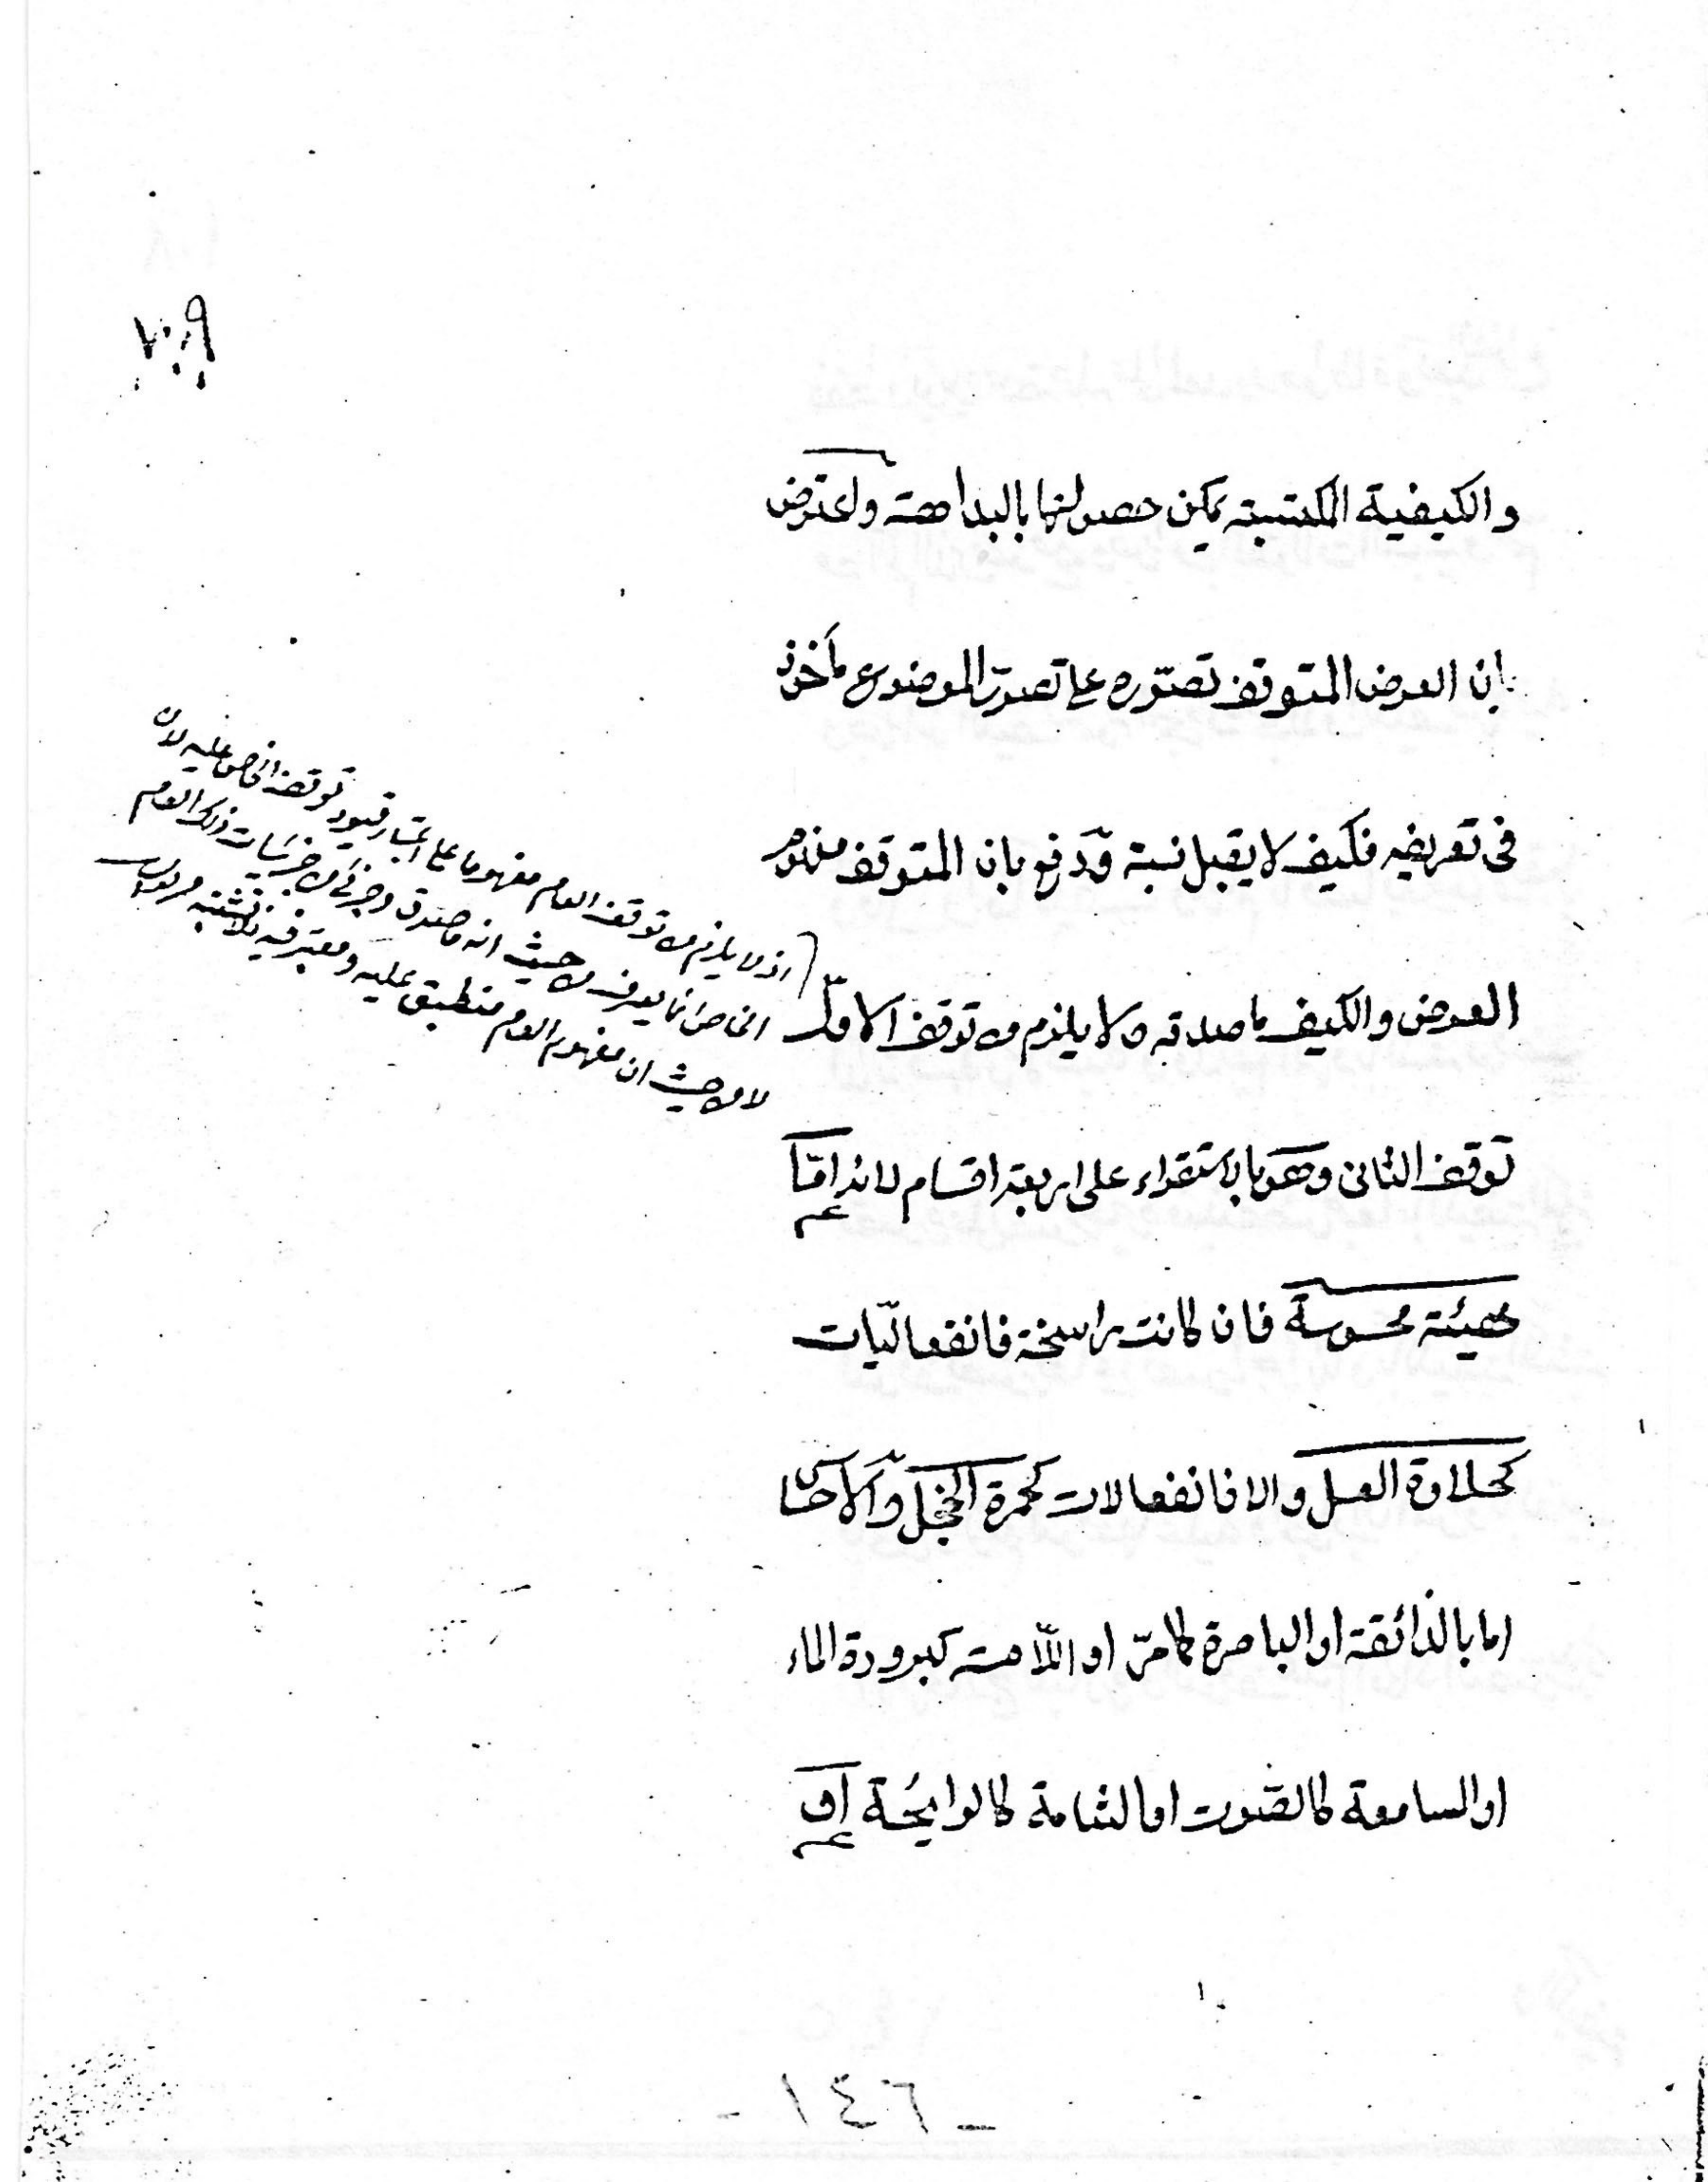 ١٠٩
والكيفية المكتسبة يمكن حصولها بالبداهة واعترض
بان العرض المتوقف تصوّره على تصوّر الموضوع مأخوذ
فى تعريفه فكيف لا يقبل نسبة وّدفع بان المتوقف مفهوم
العرض والكيف ماصدقه ولا يلزم من توقف الاوّل
توقف الثانى وهو بالاستقراء على اربعة اقسام لانه امّا
هيئة محسوسة فان كانت راسخة فانفعاليّات
كحلاوة العسل والا فانفعالات كحمرة الخجل والاحساس
اما بالذائقة او الباصرة كما مرّ او اللّامسة كبرودة الماء
او السامعة كالصّوت او الشامة كالرايحُة او
اذ لا يلزم من توقف العام مفهوما على اعتبار قيود توقف الخاص عليه لانّ
الخاص انما يعرف من حيث انه ماصدق وجزئى من جزئيات ذلك العام
لا من حيث ان مفهوم العام منطبق عليه ومعتبر فيه
- ١٤٦ -